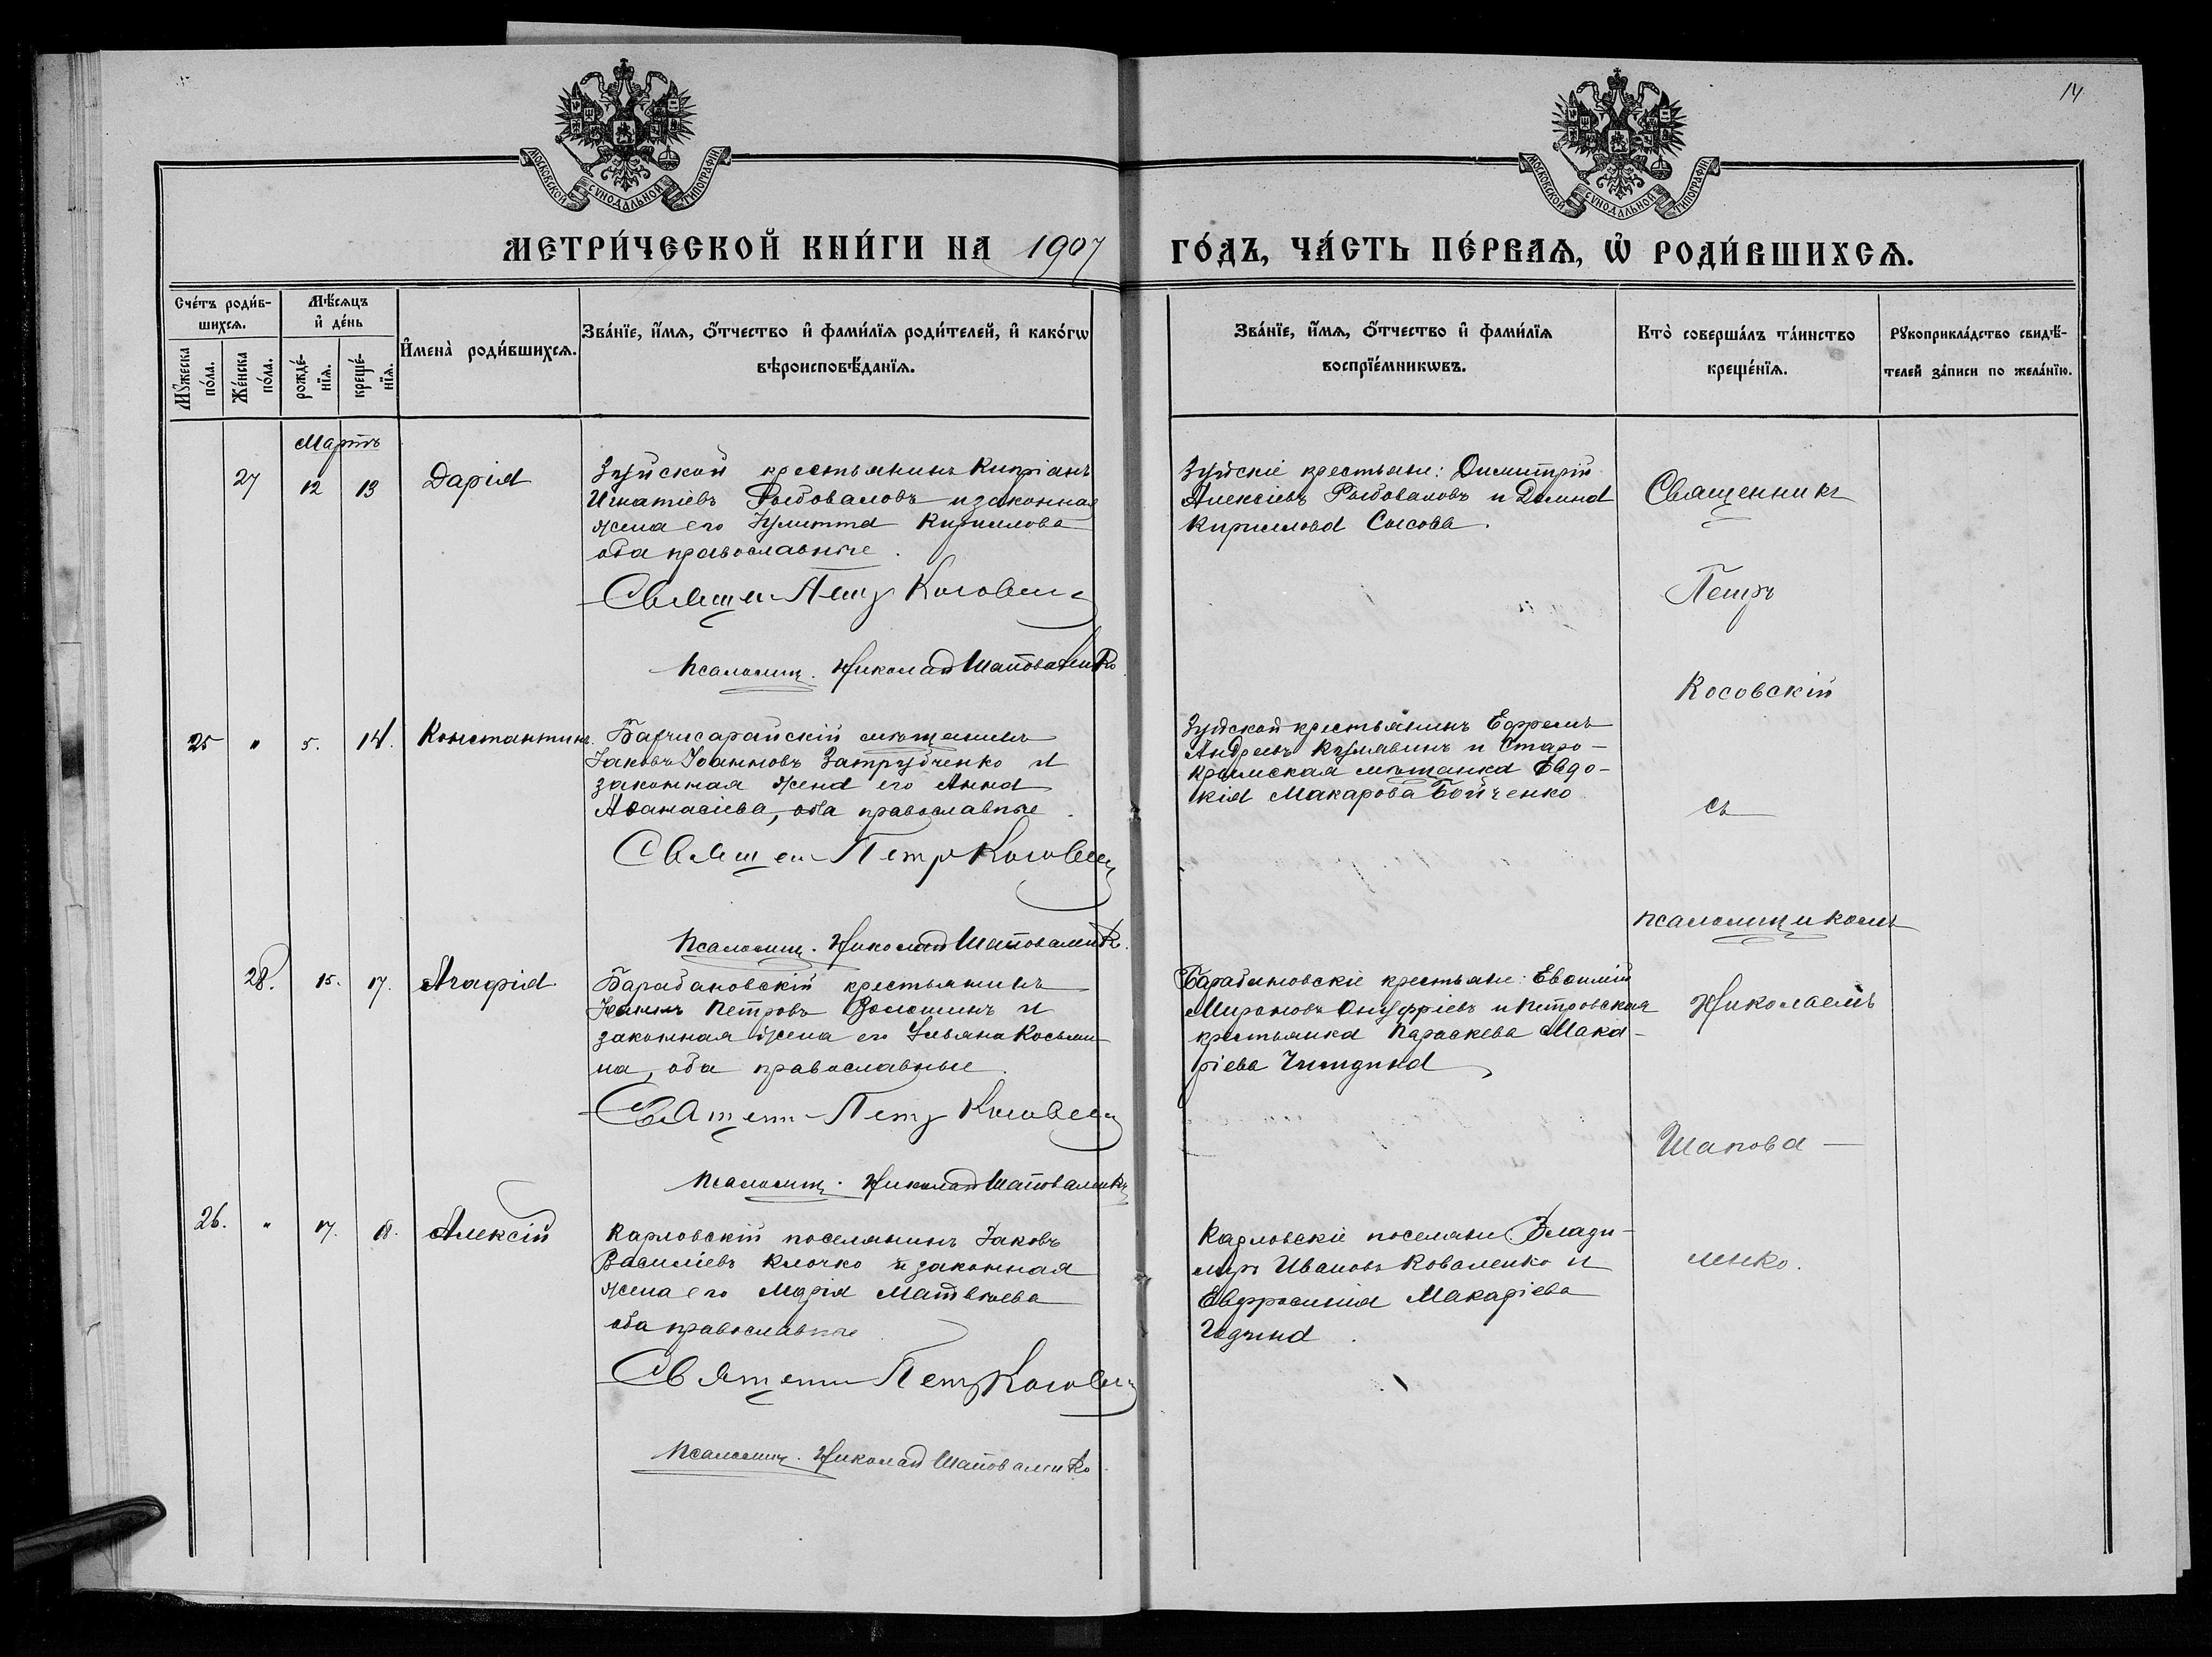 14
МОСКОВСКОЙ СѴНОДАЛЬНОЙ ТИПОГРАФІИ
МОСКОВСКОЙ СѴНОДАЛЬНОЙ ТИПОГРАФІИ
МЕТРИ́ЧЕСКОЙ КНИ́ГИ НА 1907 ГО́ДЪ, ЧА́СТЬ ПЕ́РВАѦ, Ѡ҆ РОДИ́ВШИХСѦ.
Сче́тъ роди́в-
шихсѧ.
Мѹ́жеска по́ла.
Же́нска по́ла.
Мѣ́сѧцъ
и҆ де́нь
рожде́-
нїѧ.
креще́-
нїѧ.
И҆мена̀ роди́вшихсѧ.
Зва́нїе, и҆́мѧ, ѻ҆́тчество и҆ фами́лїѧ роди́телей, и҆ како́гѡ
вѣроисповѣ́данїѧ.
Зва́нїе, и҆́мѧ, ѻ҆́тчество и҆ фами́лїѧ
воспрїе́мникѡвъ.
Кто̀ соверша́лъ та́инство
креще́нїѧ.
Рѹкоприкла́дство свидѣ́-
телей за́писи по жела́нїю.
Мартъ
27 12 13 Дарія
Зуйской крестьянинъ Кипріанъ
Игнатіевъ Рыбоваловъ и законная
жена его Іулитта Кириллова
оба православные.
Священ Петръ Косовскій
Псаломщ. Николай Шаповаленко
Зуйскіе крестьяне: Димитрій
Алексіевъ Рыбоваловъ и Домна
Кириллова Сысова.
25 " 5. 14. Константинъ.
Бахчисарайскій мѣщанинъ
Іаковъ Іоанновъ Затрубченко и
законная жена его Анна
Аѳанасіева, оба православные.
Священ Петръ Косовскій
Псаломщ. Николай Шаповаленко.
Зуйской крестьянинъ Ефремъ
Андреевъ и Старо-
крымская мѣщанка Евдо-
кія Макарова Бойченко
28. 15. 17. Агафія
Барабановскій крестьянинъ
Іоаннъ Петровъ Волошинъ и
законная жена его Ульяна Косьми-
на, оба православные.
Священ Петръ Косовскій
Псаломщ. Николай Шаповаленко
Барабановскіе крестьяне: Евѳимій
Мироновъ Онуфріевъ и Петровская
крестьянка Параскева Мака-
ріева
26. " 17. 18. Алексій
Карловскій поселянинъ Іаковъ
Василіевъ Клочко и законная
жена его Марія Матвѣева
оба православные
Священ Петръ Косовскій
Псаломщ. Николай Шаповаленко.
Карловскіе поселяне Влади-
миръ Ивановъ Коваленко и
Евфросинія Макаріева
Священникъ
Петръ
Косовскій
съ
псаломщикомъ
Николаемъ
Шапова-
ленко.